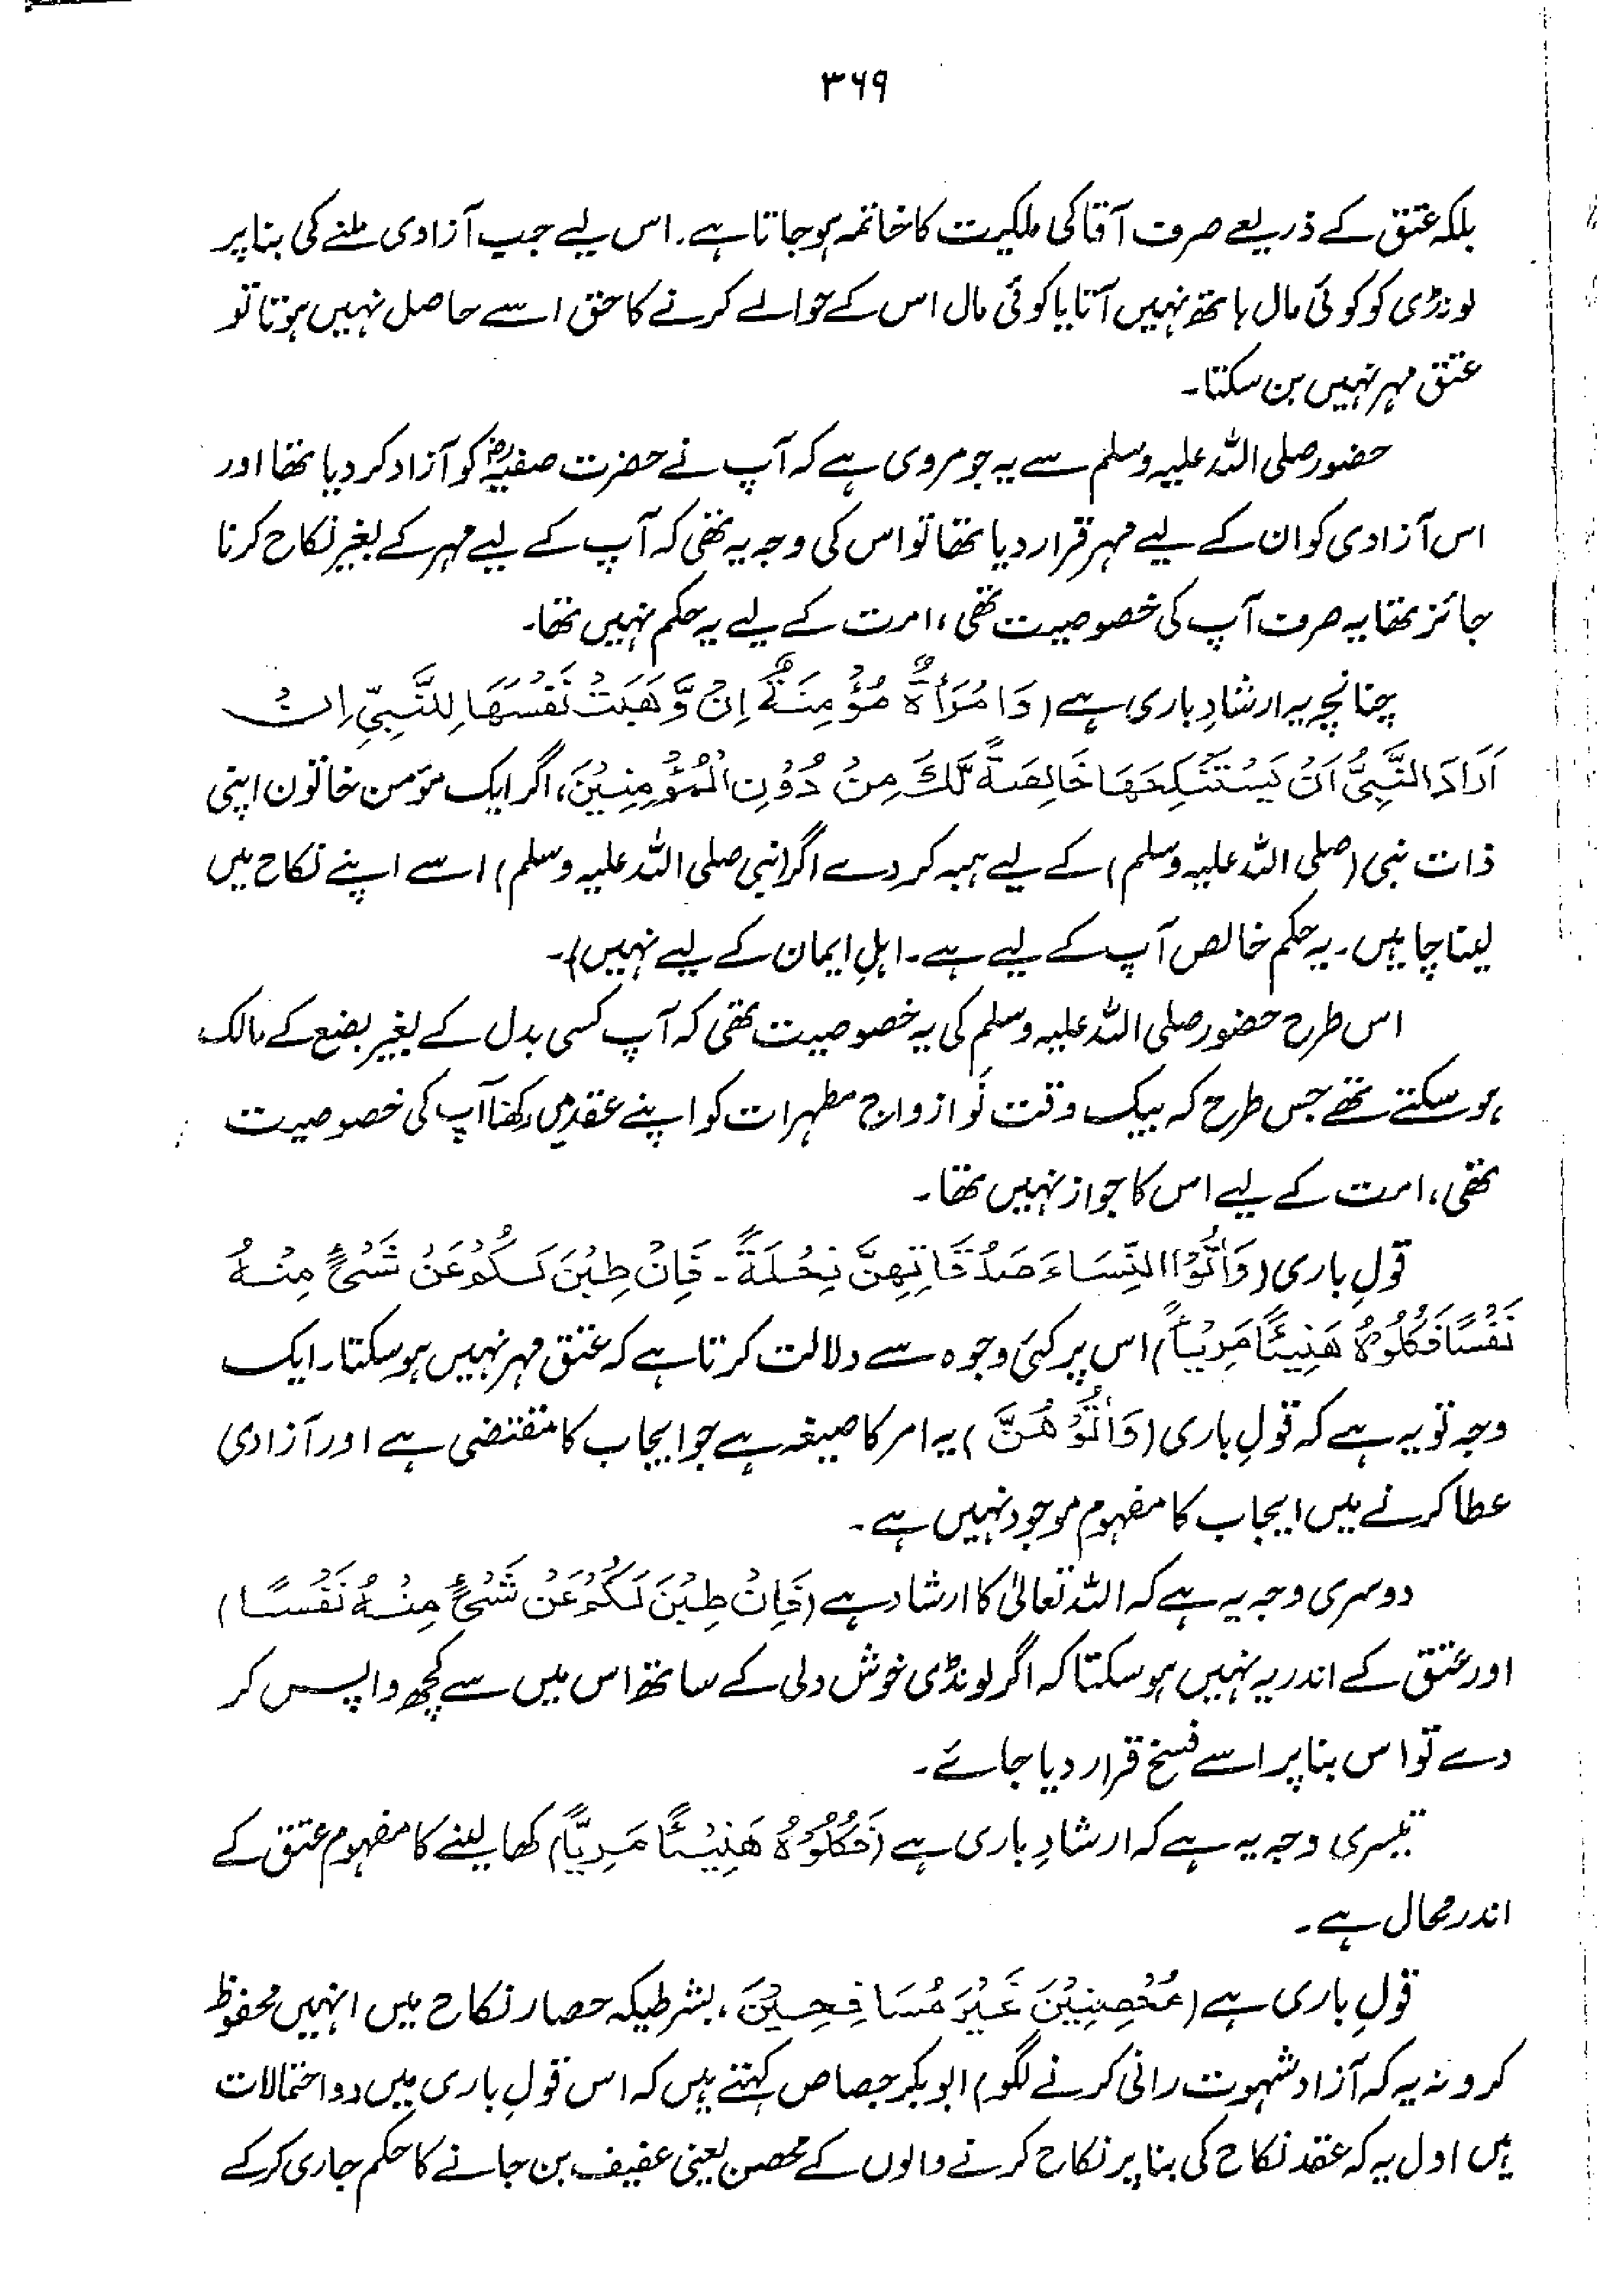 ۳۶۹
بلکہ عتق کے ذریعے صرف آقا کی ملکیت کا خاتمہ ہو جاتا ہے۔ اس لیے جب آزادی ملنے کی بنا پر
لونڈی کو کوئی مال ہاتھ نہیں آتا یا کوئی مال اس کے حوالے کرنے کا حق اسے حاصل نہیں ہوتا تو
عتق مہر نہیں بن سکتا۔
حضور صلی اللہ علیہ وسلم سے یہ جو مروی ہے کہ آپ نے حضرت صفیہؓ کو آزاد کر دیا تھا اور
اس آزادی کو ان کے لیے مہر قرار دیا تھا تو اس کی وجہ یہ تھی کہ آپ کے لیے مہر کے بغیر نکاح کرنا
جائز تھا یہ صرف آپ کی خصوصیت تھی، امت کے لیے یہ حکم نہیں تھا۔
چنانچہ یہ ارشادِ باری ہے (وَامْرَأَةً مُّؤْمِنَةً اِنْ وَّهَبَتْ نَفْسَهَا لِلنَّبِيِّ اِنْ
اَرَادَ النَّبِيُّ اَنْ يَسْتَنْكِحَهَا خَالِصَةً لَّكَ مِنْ دُوْنِ الْمُؤْمِنِيْنَ، اگر ایک مومن خاتون اپنی
ذات نبی (صلی اللہ علیہ وسلم) کے لیے ہبہ کر دے اگر (نبی صلی اللہ علیہ وسلم) اسے اپنے نکاح میں
لینا چاہیں۔ یہ حکم خالص آپ کے لیے ہے۔ اہلِ ایمان کے لیے نہیں)۔
اس طرح حضور صلی اللہ علیہ وسلم کی یہ خصوصیت تھی کہ آپ کسی بدل کے بغیر بضع کے مالک
ہو سکتے تھے جس طرح کہ بیک وقت نَو ازواج مطہرات کو اپنے عقد میں رکھنا آپ کی خصوصیت
تھی، امت کے لیے اس کا جواز نہیں تھا۔
قولِ باری (وَاٰتُوا النِّسَاءَ صَدُقَاتِهِنَّ نِحْلَةً۔ فَاِنْ طِبْنَ لَكُمْ عَنْ شَيْءٍ مِنْهُ
نَفْسًا فَكُلُوْهُ هَنِيْئًا مَرِيْئًا) اس پر کئی وجوہ سے دلالت کرتا ہے کہ عتق مہر نہیں ہو سکتا۔ ایک
وجہ تو یہ ہے کہ قولِ باری (وَاٰتُوْهُنَّ) یہ امر کا صیغہ ہے جو ایجاب کا مقتضی ہے اور آزادی
عطا کرنے میں ایجاب کا مفہوم موجود نہیں ہے۔
دوسری وجہ یہ ہے کہ اللہ تعالیٰ کا ارشاد ہے (فَاِنْ طِبْنَ لَكُمْ عَنْ شَيْءٍ مِنْهُ نَفْسًا)
اور عتق کے اندر یہ نہیں ہو سکتا کہ اگر لونڈی خوش دلی کے ساتھ اس میں سے کچھ واپس کر
دے تو اس بنا پر اسے فسخ قرار دیا جائے۔
تیسری وجہ یہ ہے کہ ارشادِ باری ہے (فَكُلُوْهُ هَنِيْئًا مَرِيًّا) کھا لینے کا مفہوم عتق کے
اندر محال ہے۔
قولِ باری ہے (مُحْصِنِيْنَ غَيْرَ مُسَافِحِيْنَ، بشرطیکہ حصار نکاح میں انہیں محفوظ
کرو نہ یہ کہ آزاد شہوت رانی کرنے لگو) ابوبکر جصاص کہتے ہیں کہ اس قولِ باری میں دو احتمالات
ہیں اول یہ کہ عقد نکاح کی بنا پر نکاح کرنے والوں کے محصن یعنی عفیف بن جانے کا حکم جاری کر کے